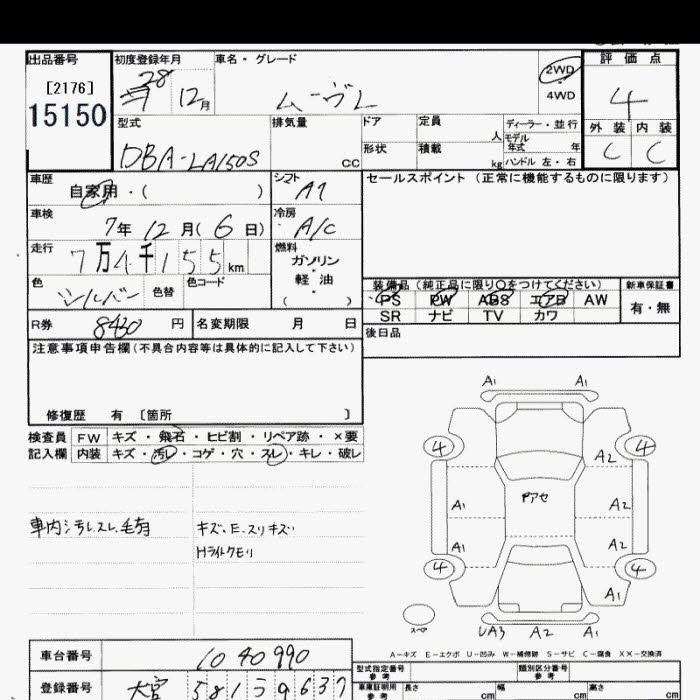 出品番号
[2176]
15150
初度登録年月
28年 12月
車名・グレード
ムーヴL
2WD
4WD
評価点
4
外装 内装
C C
型式
DBA-LA150S
排気量
cc
ドア
形状
定員
人
積載
kg
ディーラー・並行
モデル年式 年
ハンドル 左・右
車歴
自家用・( )
シフト
AT
セールスポイント (正常に機能するものに限ります)
車検
7年 12月( 6日)
冷房
A/C
走行
7万4千155km
燃料
ガソリン
・
軽油
( )
色
シルバー
色替
色コード
装備品 (純正品に限り○をつけてください)
新車保証書
PS PW ABS エアB AW
SR ナビ TV カワ
有・無
R券
8430円
名変期限 月 日
後日品
注意事項申告欄(不具合内容等は具体的に記入して下さい)
修復歴 有 〔箇所 〕
検査員
記入欄
FW キズ・飛石・ヒビ割・リペア跡・×要
内装 キズ・汚レ・コゲ・穴・スレ・キレ・破レ
車内シヨレ、スレ、毛有
キズ、E、スリキズ
Hライトクモリ
A1 A1
4 4
A2
Pアセ
A1 A2
A1 A2
4 4
A1
スペア
UA3 A2 A1
A-キズ E-エクボ U-凹み W-補修跡 S-サビ C-腐食 XX-交換済
車台番号
1040990
登録番号
大宮 581 ら 9637
型式指定番号
参考
類別区分番号
参考
車庫証明用
参考
長さ cm 幅 cm 高さ cm